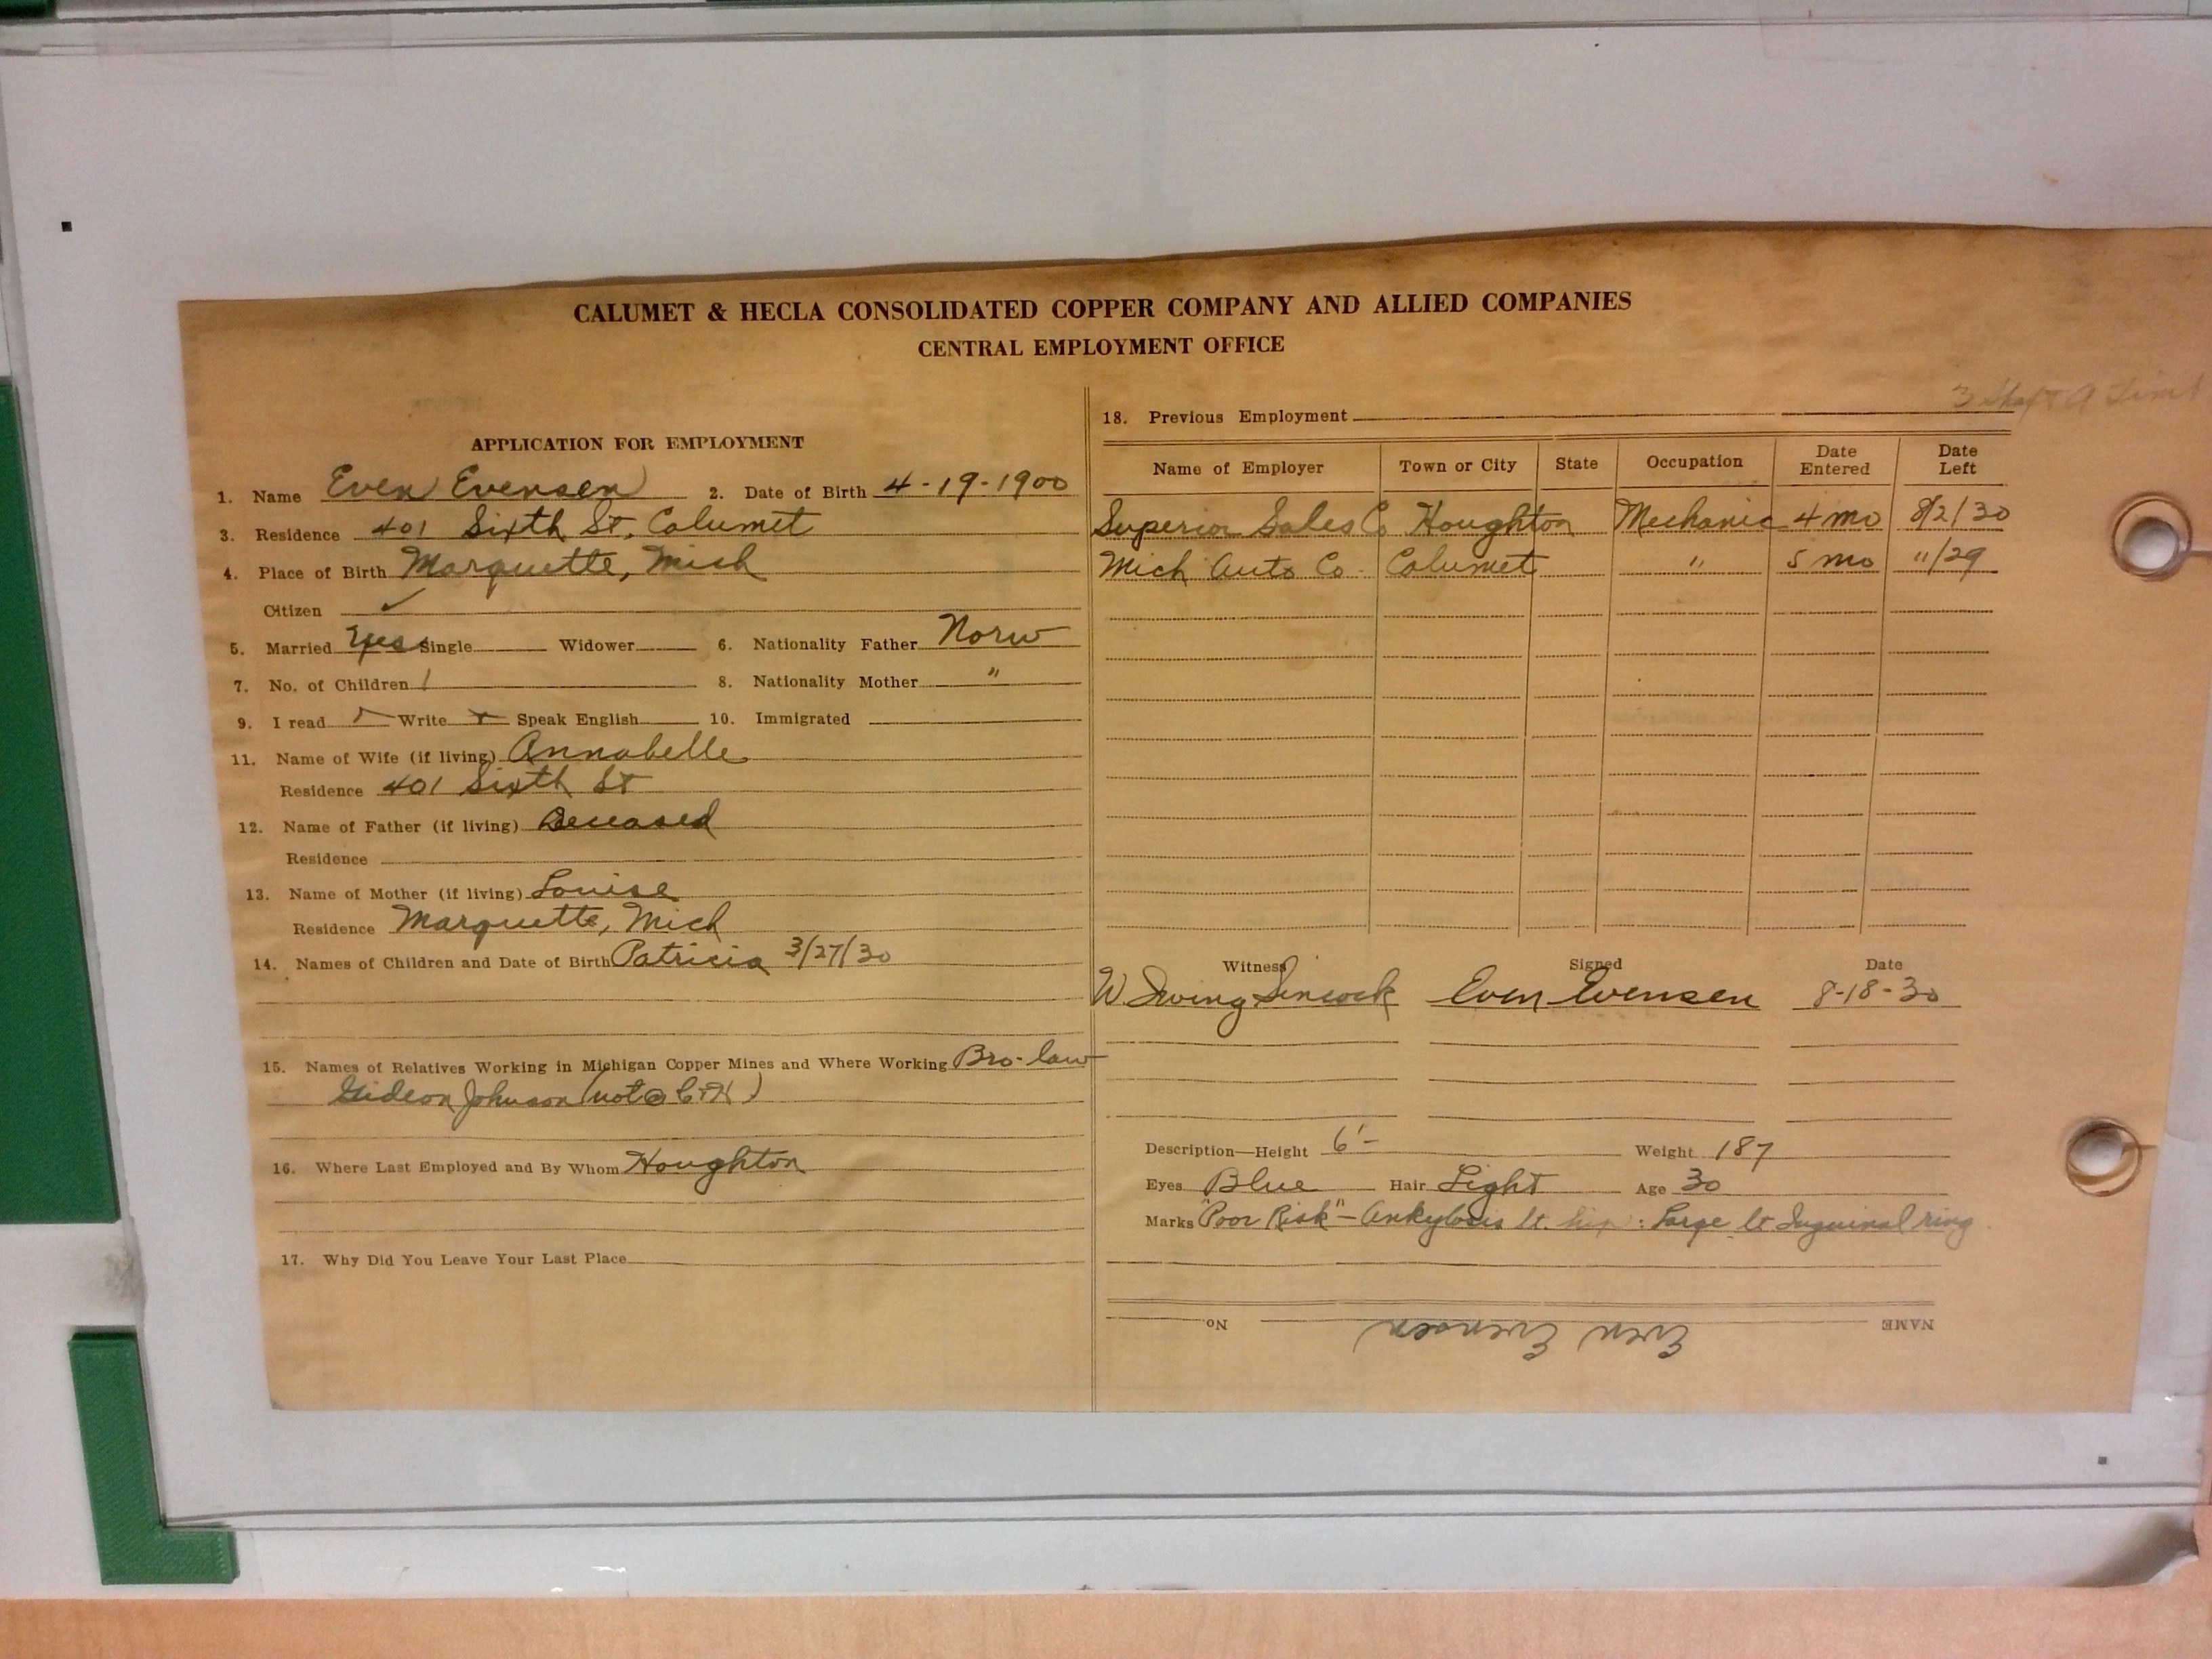 CALUMET & HECLA CONSOLIDATED COPPER COMPANY AND ALLIED COMPANIES
CENTRAL EMPLOYMENT OFFICE
APPLICATION FOR EMPLOYMENT
1. Name Even Evensen 2. Date of Birth 4-19-1900
3. Residence 401 Sixth St, Calumet
4. Place of Birth Marquette, Mich
Citizen ✓
5. Married Yes Single Widower 6. Nationality Father Norw
7. No. of Children 1 8. Nationality Mother "
9. I read ✓ Write ✓ Speak English 10. Immigrated
11. Name of Wife (if living) Annabelle
Residence 401 Sixth St
12. Name of Father (if living) Deceased
Residence
13. Name of Mother (if living) Louise
Residence Marquette, Mich
14. Names of Children and Date of Birth Patricia 3/27/30
15. Names of Relatives Working in Michigan Copper Mines and Where Working Bro-law
Gideon Johnson (not @ C+H)
16. Where Last Employed and By Whom Houghton
17. Why Did You Leave Your Last Place
3 Shaft
18. Previous Employment
Name of Employer Town or City State Occupation Date Entered Date Left
Superior Sales Co Houghton Mechanic 4 mo 8/2/30
Mich Auto Co. Calumet " 5 mo "/29
Witness Signed Date
W. Irving Sincock Even Evensen 8-18-30
Description—Height 6'- Weight 187
Eyes Blue Hair Light Age 30
Marks "Poor Risk" - Ankylosis lt. hip: Large lt Inguinal ring
NAME Even Evensen No.